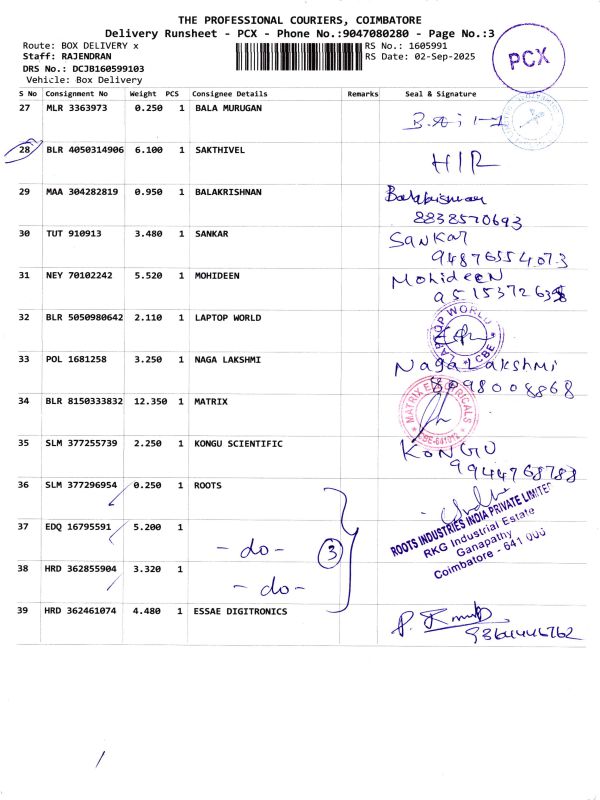 THE PROFESSIONAL COURIERS, COIMBATORE
Delivery Runsheet - PCX - Phone No.:9047080280 - Page No.:3
Route: BOX DELIVERY x
RS No.: 1605991
Staff: RAJENDRAN
RS Date: 02-Sep-2025
DRS No.: DCJB160599103
Vehicle: Box Delivery
PCX
S No Consignment No Weight PCS Consignee Details Remarks Seal & Signature
27 MLR 3363973 0.250 1 BALA MURUGAN
28 BLR 4050314906 6.100 1 SAKTHIVEL H/R
29 MAA 304282819 0.950 1 BALAKRISHNAN Balakrishnan
8838570693
30 TUT 910913 3.480 1 SANKAR SanKar
9487655407.3
31 NEY 70102242 5.520 1 MOHIDEEN MohideeN
32 BLR 5050980642 2.110 1 LAPTOP WORLD
LAPTOP WORLD CBE
33 POL 1681258 3.250 1 NAGA LAKSHMI Naga Lakshmi
8098008868
34 BLR 8150333832 12.350 1 MATRIX
MATRIX ELECTRICALS
CBE-641012
35 SLM 377255739 2.250 1 KONGU SCIENTIFIC KONGU
9944768788
36 SLM 377296954 0.250 1 ROOTS
37 EDQ 16795591 5.200 1
- do -
3
ROOTS INDUSTRIES INDIA PRIVATE LIMITED
RKG Industrial Estate
Ganapathy
Coimbatore - 641 006
38 HRD 362855904 3.320 1
- do -
39 HRD 362461074 4.480 1 ESSAE DIGITRONICS
9364446762